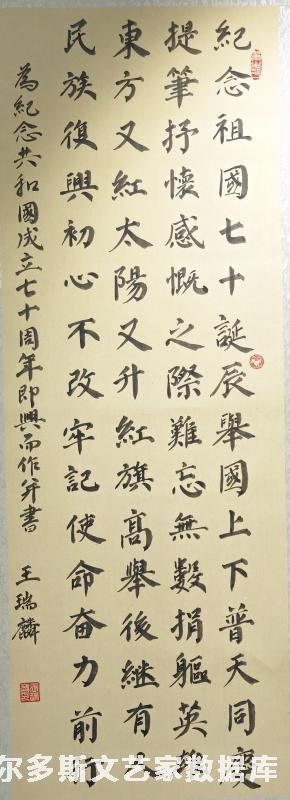 紀念祖國七十誕辰舉國上下普天同慶
提筆抒懷感慨之際難忘無數捐軀英
東方又紅太陽又升紅旗高舉後继有人
民族復興初心不改牢記使命奋力前行
為紀念共和國成立七十周年即興而作并書
王瑞麟
尔多斯文艺家数据库